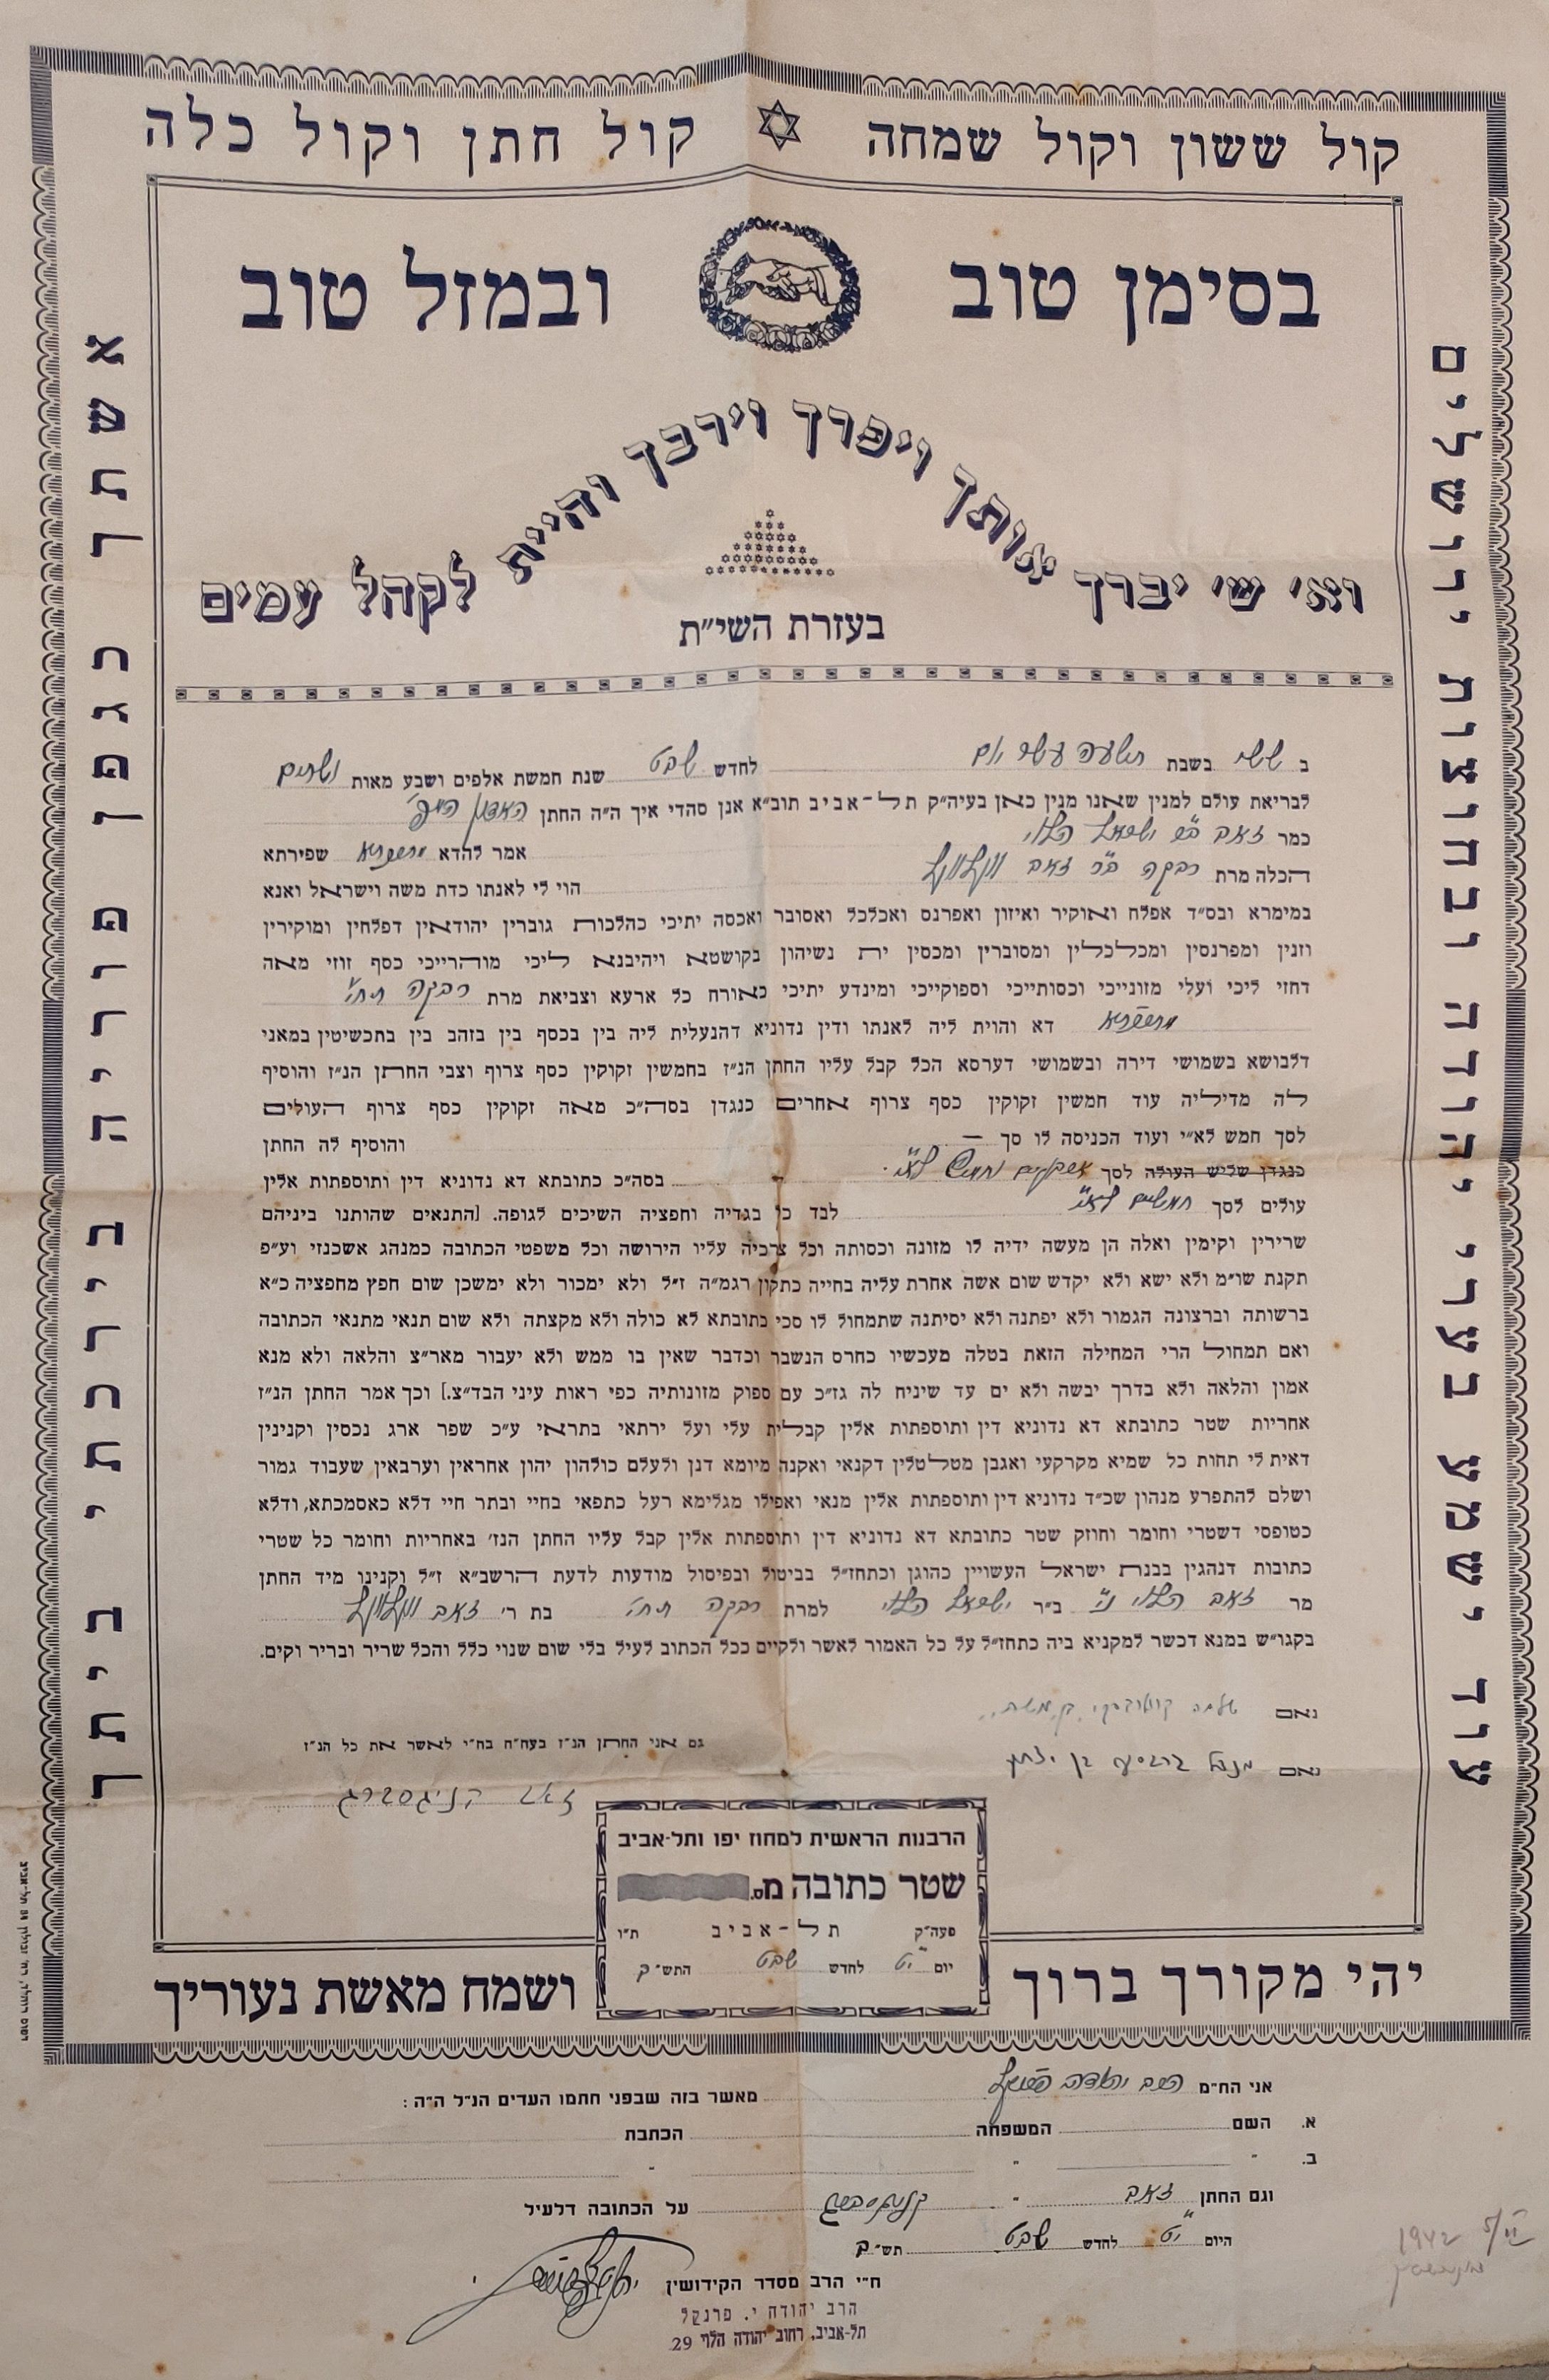 קול ששון וקול שמחה קול חתן וקול כלה
בסימן טוב ובמזל טוב
ואי שי יברך אותך ויפרך וירבך והיית לקהל עמים
בעזרת השי״ת
עוד ישמע בערי יהודה ובחוצות ירושלים
אשתך כגפן פוריה בירכתי ביתך
ב ששי בשבת תשעה עשר יום לחדש שבט שנת חמשת אלפים ושבע מאות ושתים
לבריאת עולם למנין שאנו מנין כאן בעיה״ק תל-אביב תוב״א אנן סהדי איך ה״ה החתן האדון היקר
כמר זאב ב״ר ישראל הלוי
אמר להדא שפירתא
הכלה מרת רבקה ב״ר זאב
הוי לי לאנתו כדת משה וישראל ואנא
במימרא ובס״ד אפלח ואוקיר ואיזון ואפרנס ואכלכל ואסובר ואכסה יתיכי כהלכות גוברין יהודאין דפלחין ומוקירין
וזנין ומפרנסין ומכלכלין ומסוברין ומכסין ית נשיהון בקושטא ויהיבנא ליכי מוהרייכי כסף זוזי מאה
דחזי ליכי ועלי מזונייכי וכסותייכי וספוקייכי ומינדע יתיכי כאורח כל ארעא וצביאת מרת רבקה תחי׳
דא והוית ליה לאנתו ודין נדוניא דהנעלית ליה בין בכסף בין בזהב בין בתכשיטין במאני
דלבושא בשמושי דירה ובשמושי דערסא הכל קבל עליו החתן הנ״ז בחמשין זקוקין כסף צרוף וצבי החתן הנ״ז והוסיף
לה מדיליה עוד חמשין זקוקין כסף צרוף אחרים כנגדן בסה״כ מאה זקוקין כסף צרוף העולים
לסך חמש לא״י ועוד הכניסה לו סך — והוסיף לה החתן
כנגדן שליש העולה לסך ארבעים וחמש לא״י. בסה״כ כתובתא דא נדוניא דין ותוספתות אלין
עולים לסך חמשים לא״י לבד כן בגדיה וחפציה השיכים לגופה. [התנאים שהותנו ביניהם
שרירין וקימין ואלה הן מעשה ידיה לו מזונה וכסותה וכל צרכיה עליו הירושה וכל משפטי הכתובה כמנהג אשכנזי וע״פ
תקנת שו״מ ולא ישא ולא יקדש שום אשה אחרת עליה בחייה כתקון רגמ״ה ז״ל ולא ימכור ולא ימשכן שום חפץ מחפציה כ״א
ברשותה וברצונה הגמור ולא יפתנה ולא יסיתנה שתמחול לו סכי כתובתא לא כולה ולא מקצתה ולא שום תנאי מתנאי הכתובה
ואם תמחול הרי המחילה הזאת בטלה מעכשיו כחרס הנשבר וכדבר שאין בו ממש ולא יעבור מאר״צ והלאה ולא מנא
אמון והלאה ולא בדרך יבשה ולא ים עד שיניח לה גז״כ עם ספוק מזונותיה כפי ראות עיני הבד״צ.] וכך אמר החתן הנ״ז
אחריות שטר כתובתא דא נדוניא דין ותוספתות אלין קבלית עלי ועל ירתאי בתראי ע״כ שפר ארג נכסין וקנינין
דאית לי תחות כל שמיא מקרקעי ואגבן מטלטלין דקנאי ואקנה מיומא דנן ולעלם כולהון יהון אחראין וערבאין שעבוד גמור
ושלם להתפרע מנהון שכ״ד נדוניא דין ותוספתות אלין מנאי ואפילו מגלימא דעל כתפאי בחיי ובתר חיי דלא כאסמכתא, ודלא
כטופסי דשטרי וחומר וחוזק שטר כתובתא דא נדוניא דין ותוספתות אלין קבל עליו החתן הנז׳ באחריות וחומר כל שטרי
כתובות דנהגין בבנת ישראל העשויין כהוגן וכתחז״ל בביטול ובפיסול מודעות לדעת הרשב״א ז״ל וקנינו מיד החתן
מר זאב הלוי ני׳ ב״ר ישראל הלוי למרת רבקה תחי׳ בת ר׳ זאב
בקגו״ש במנא דכשר למקניא ביה כתחז״ל על כל האמור לאשר ולקיים ככל הכתוב לעיל בלי שום שנוי כלל והכל שריר ובריר וקים.
נאם שלמה בן משה
נאם בן יצחק
גם אני החתן הנ״ז בעח״ח בח״י לאשר את כל הנ״ז
זאב קניגסברג
הרבנות הראשית למחוז יפו ותל-אביב
שטר כתובה מס.
פעה״ק תל-אביב ת״ו
יום י״ט לחדש שבט התש״ב
יהי מקורך ברוך ושמח מאשת נעוריך
אני הח״מ הרב יהודה פרנקל מאשר בזה שבפני חתמו העדים הנ״ל ה״ה:
א. השם המשפחה הכתבת
ב. ״ ״ ״
וגם החתן זאב ״ קניגסברג על הכתובה דלעיל
היום י״ט לחדש שבט תש״ב
ח״י הרב מסדר הקידושין
הרב יהודה י. פרנקל
תל-אביב, רחוב יהודה הלוי 29
1942